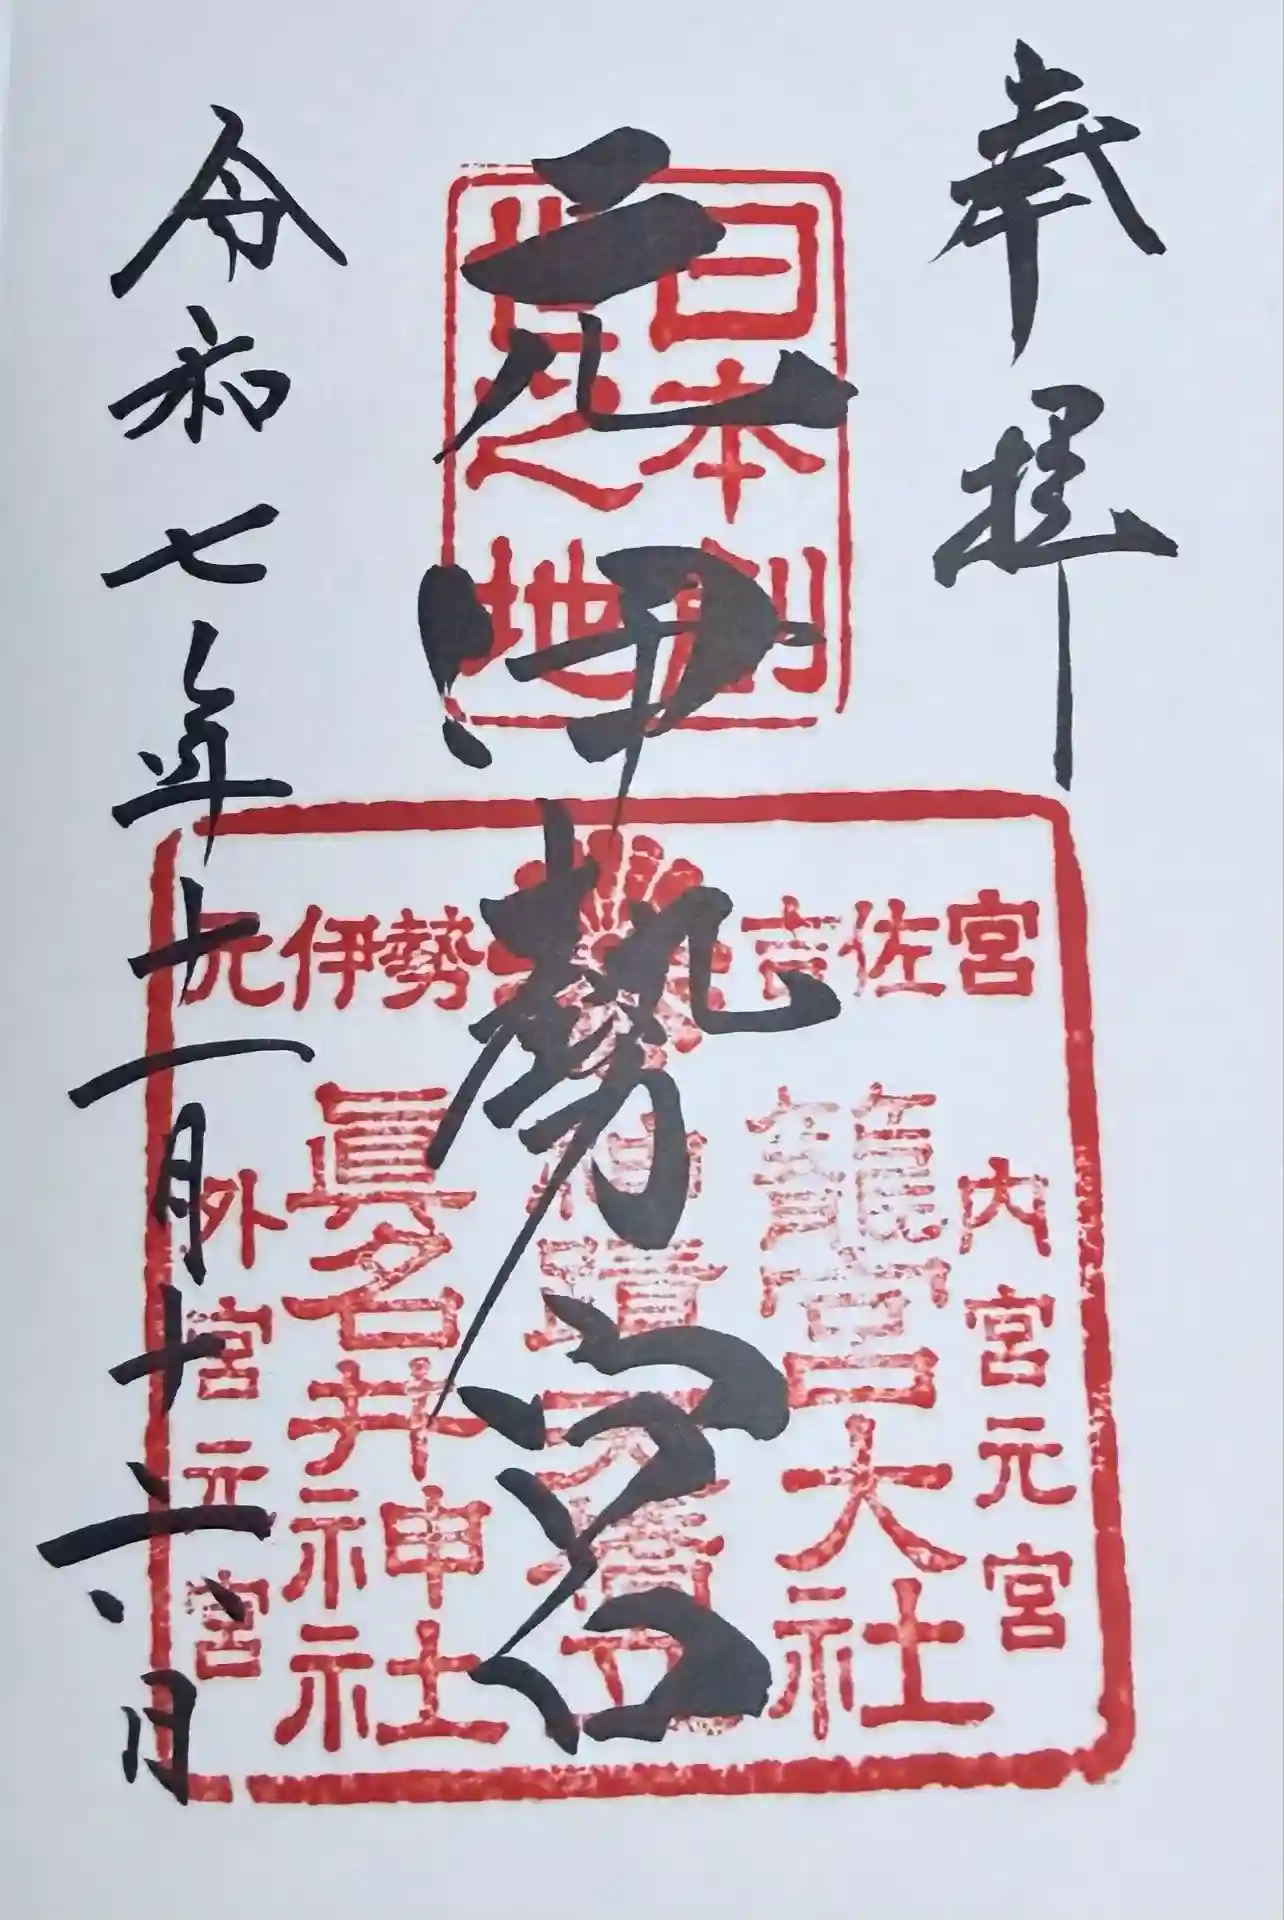 奉拝
元伊勢宮
令和七年十一月十六日
日本創
世之地
元伊勢 吉佐宮
内宮元宮
籠宮大社
天橋立
眞名井神社
外宮元宮